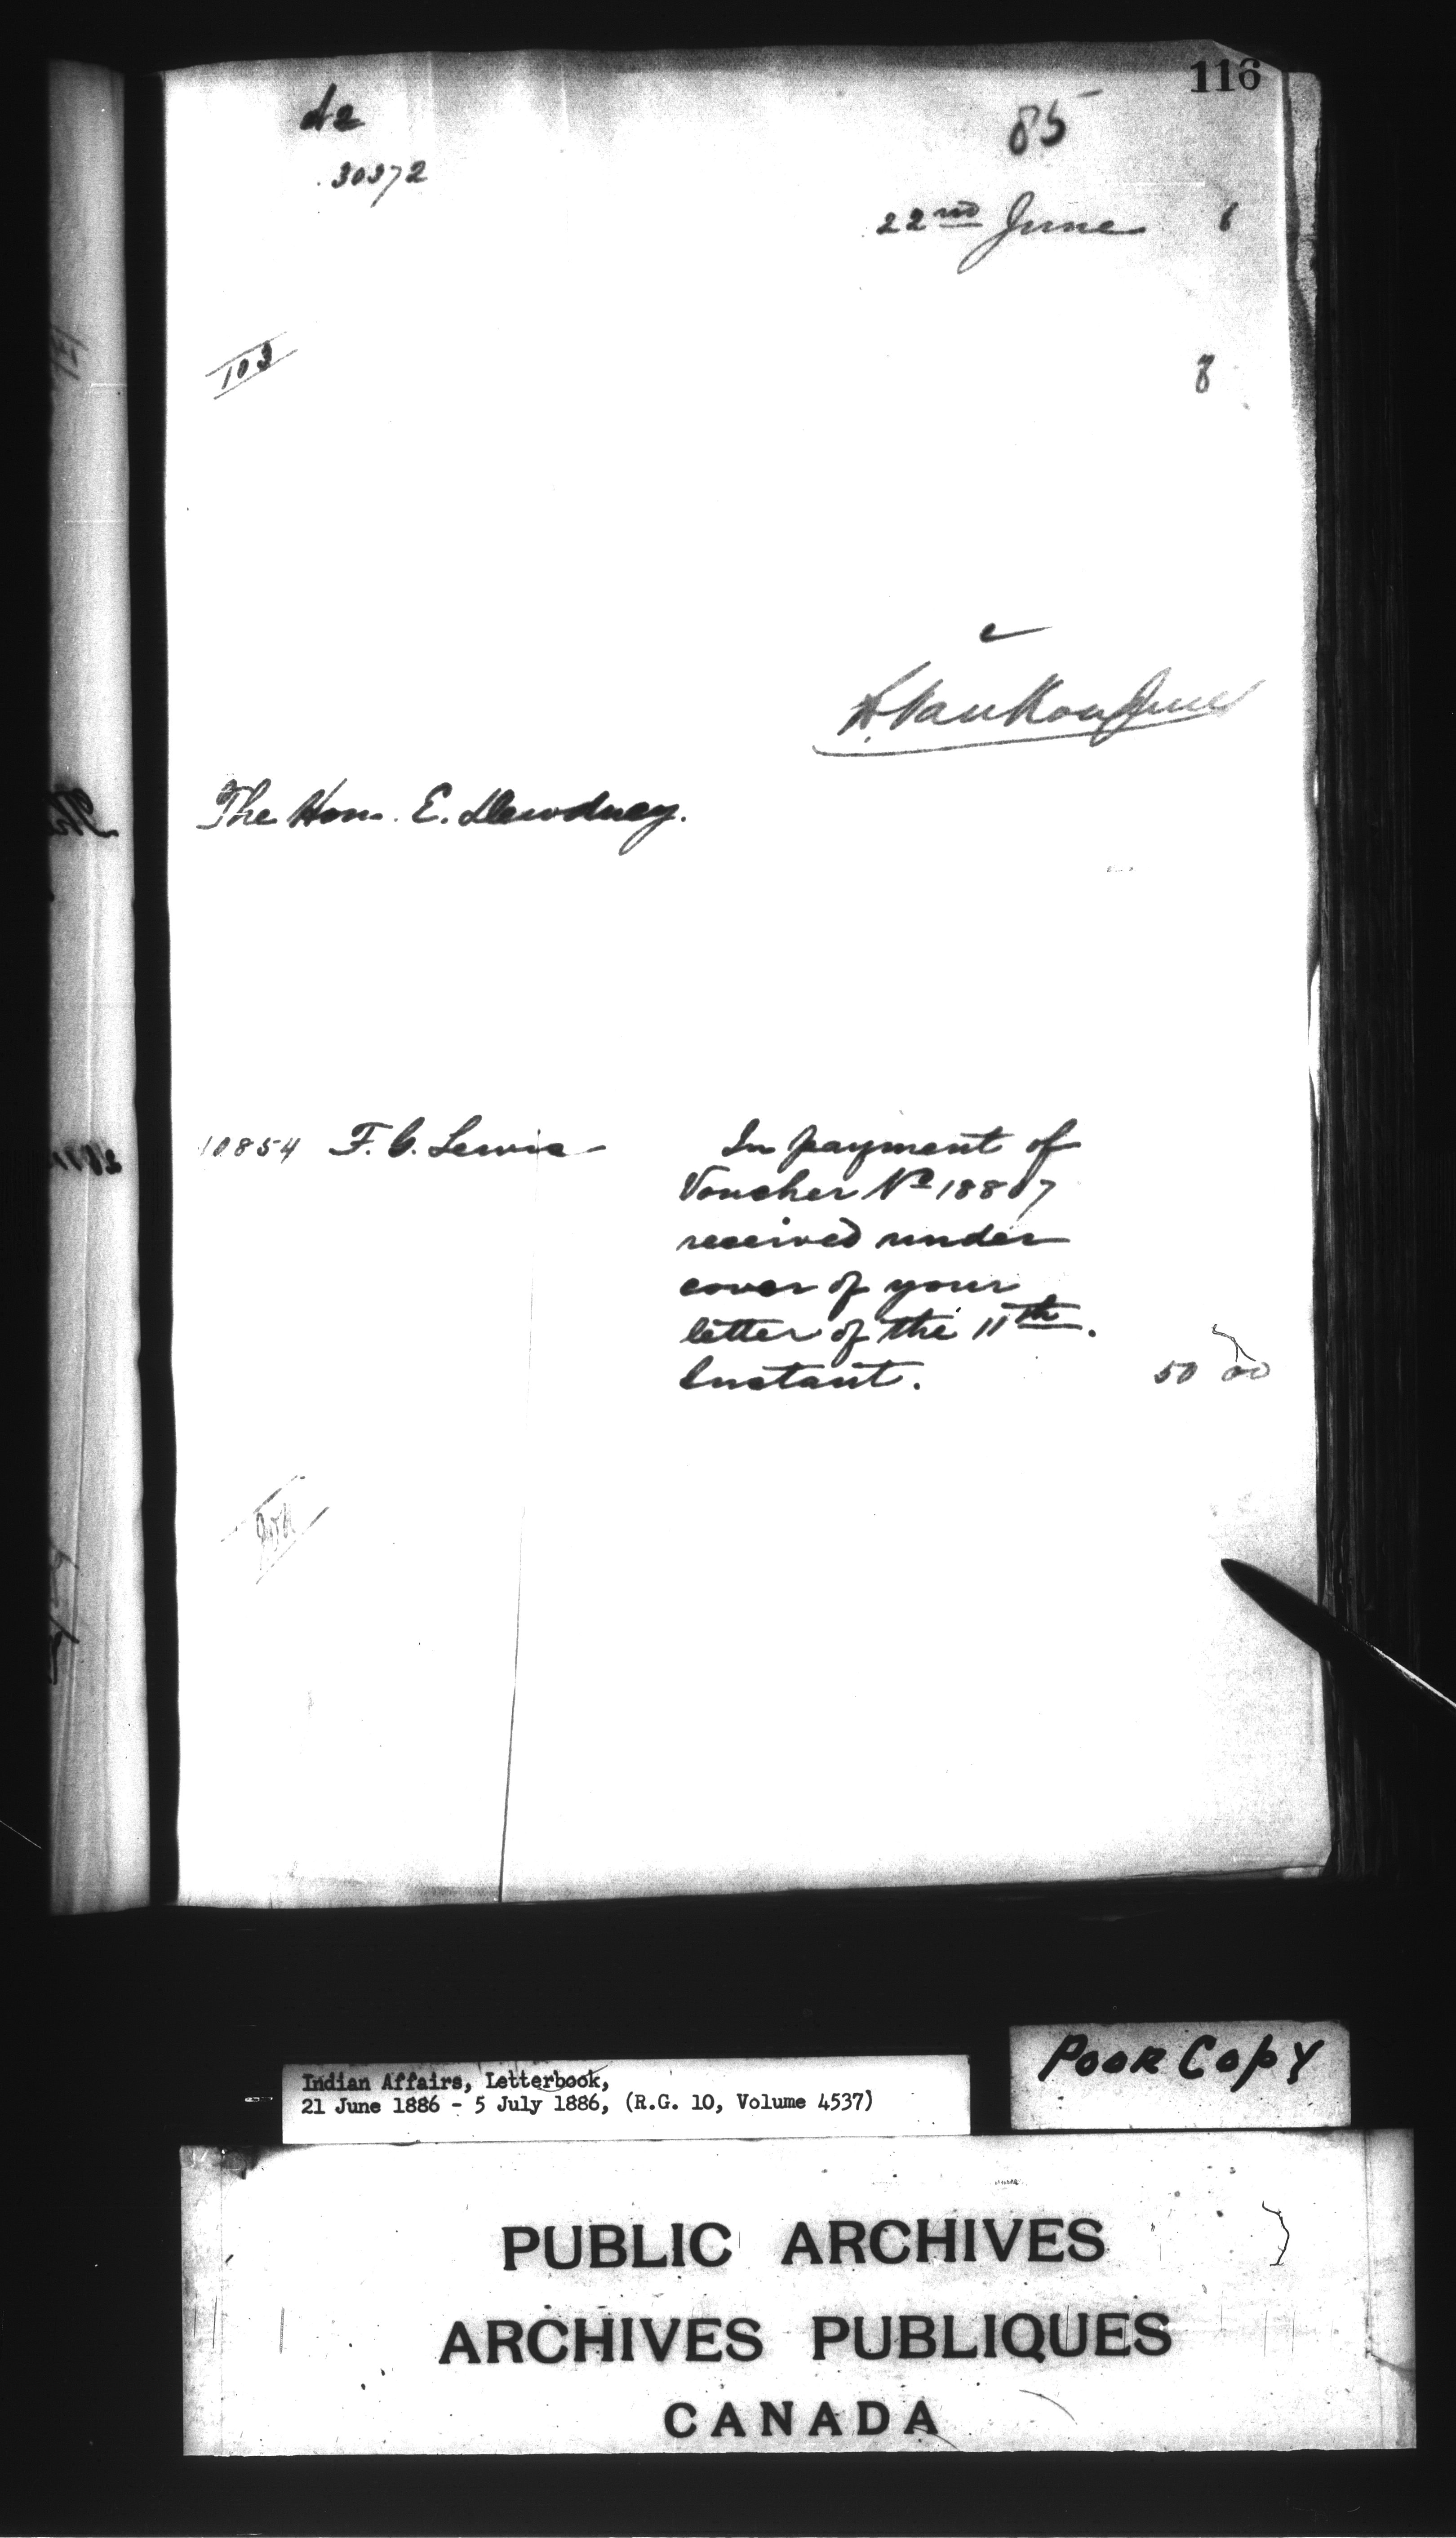 116
A2
85
30372
22nd June 6
103
8
L. VanKoughnet
The Hon. E. Dewdney.
10854 F. C. Lewis In payment of
Voucher No 18807
received under
cover of your
letter of the 11th.
Instant. 50 00
Poor Copy
Indian Affairs, Letterbook,
21 June 1886 - 5 July 1886, (R.G. 10, Volume 4537)
PUBLIC ARCHIVES
ARCHIVES PUBLIQUES
CANADA